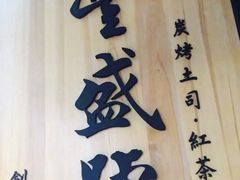 炭烤土司·紅茶
豐盛號
創